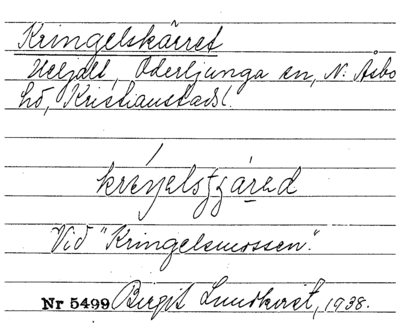 Kringelskärret
Heljalt, Oderljunga sn, N. Åsbo
hd, Kristianstads l.
Vid "Kringelsmossen".
Nr 5499 Birgit Lundkvist, 1938.